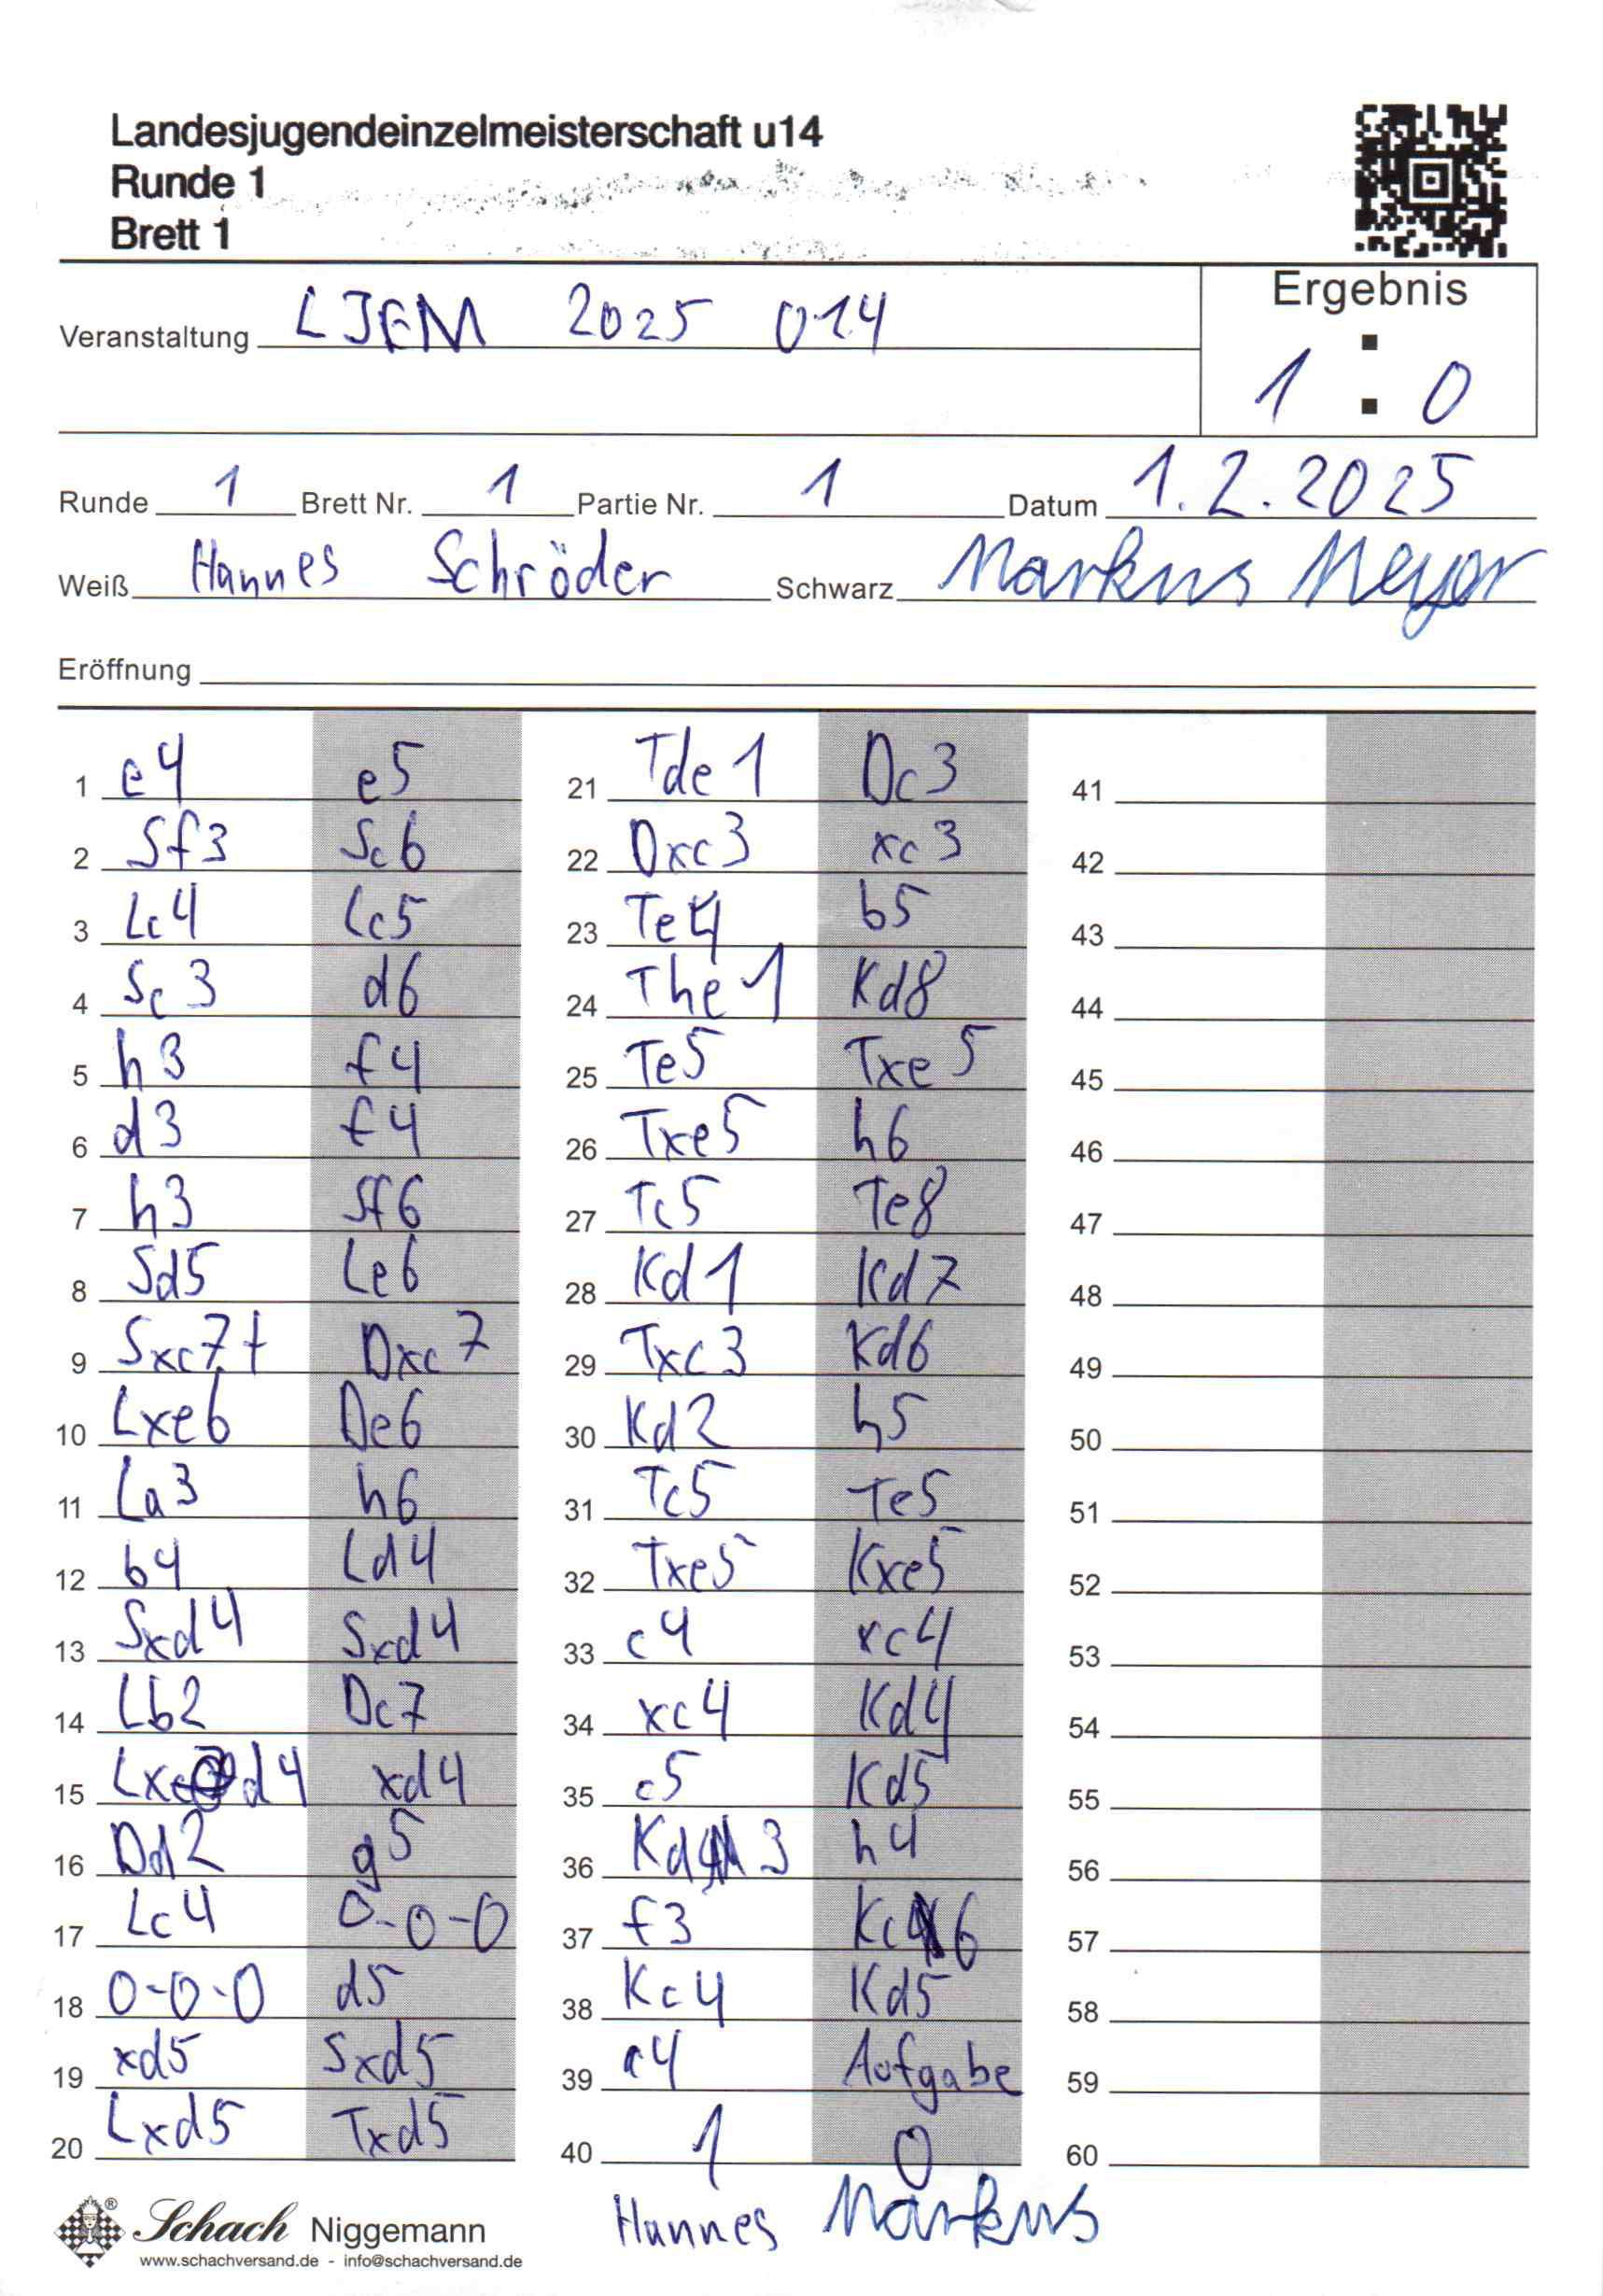 Landesjugendeinzelmeisterschaft u14
Runde 1
Brett 1
Ergebnis
Veranstaltung LJEM 2025 U14
1 : 0
Runde 1 Brett Nr. 1 Partie Nr. 1 Datum 1.2.2025
Weiß Hannes Schröder Schwarz Markus Meyer
Eröffnung
1 e4 e5 21 Tde1 Dc3 41
2 Sf3 Sc6 22 Dxc3 xc3 42
3 Lc4 Lc5 23 Te4 b5 43
4 Sc3 d6 24 The1 Kd8 44
5 h3 f4 25 Te5 Txe5 45
6 d3 f4 26 Txe5 h6 46
7 h3 Sf6 27 Tc5 Te8 47
8 Sd5 Le6 28 Kd1 Kd7 48
9 Sxc7+ Dxc7 29 Txc3 Kd6 49
10 Lxe6 De6 30 Kd2 h5 50
11 La3 h6 31 Tc5 Te5 51
12 b4 Ld4 32 Txe5 Kxe5 52
13 Sxd4 Sxd4 33 c4 xc4 53
14 Lb2 Dc7 34 xc4 Kd4 54
15 Lxd4 xd4 35 c5 Kd5 55
16 Dd2 g5 36 Kd3 h4 56
17 Lc4 0-0-0 37 f3 Kc6 57
18 0-0-0 d5 38 Kc4 Kd5 58
19 xd5 Sxd5 39 a4 Aufgabe 59
20 Lxd5 Txd5 40 1 0 60
Hannes Markus
Schach Niggemann
www.schachversand.de - info@schachversand.de